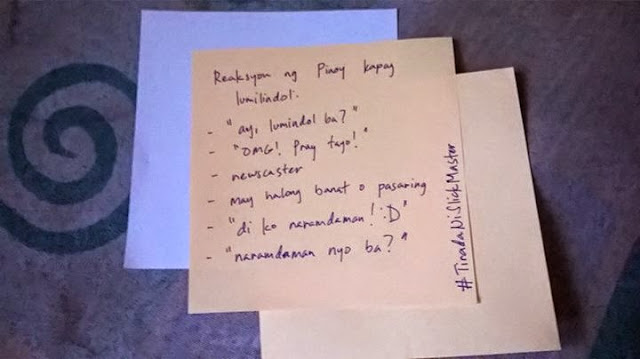 Reaksyon ng Pinoy kapag
lumilindol.
- "ay, lumindol ba?"
- "OMG! Pray tayo!"
- newscaster
- may halong banat o pasaring
- "di ko naramdaman! :D"
- "naramdaman nyo ba?"
#TiradaNiSlickMaster